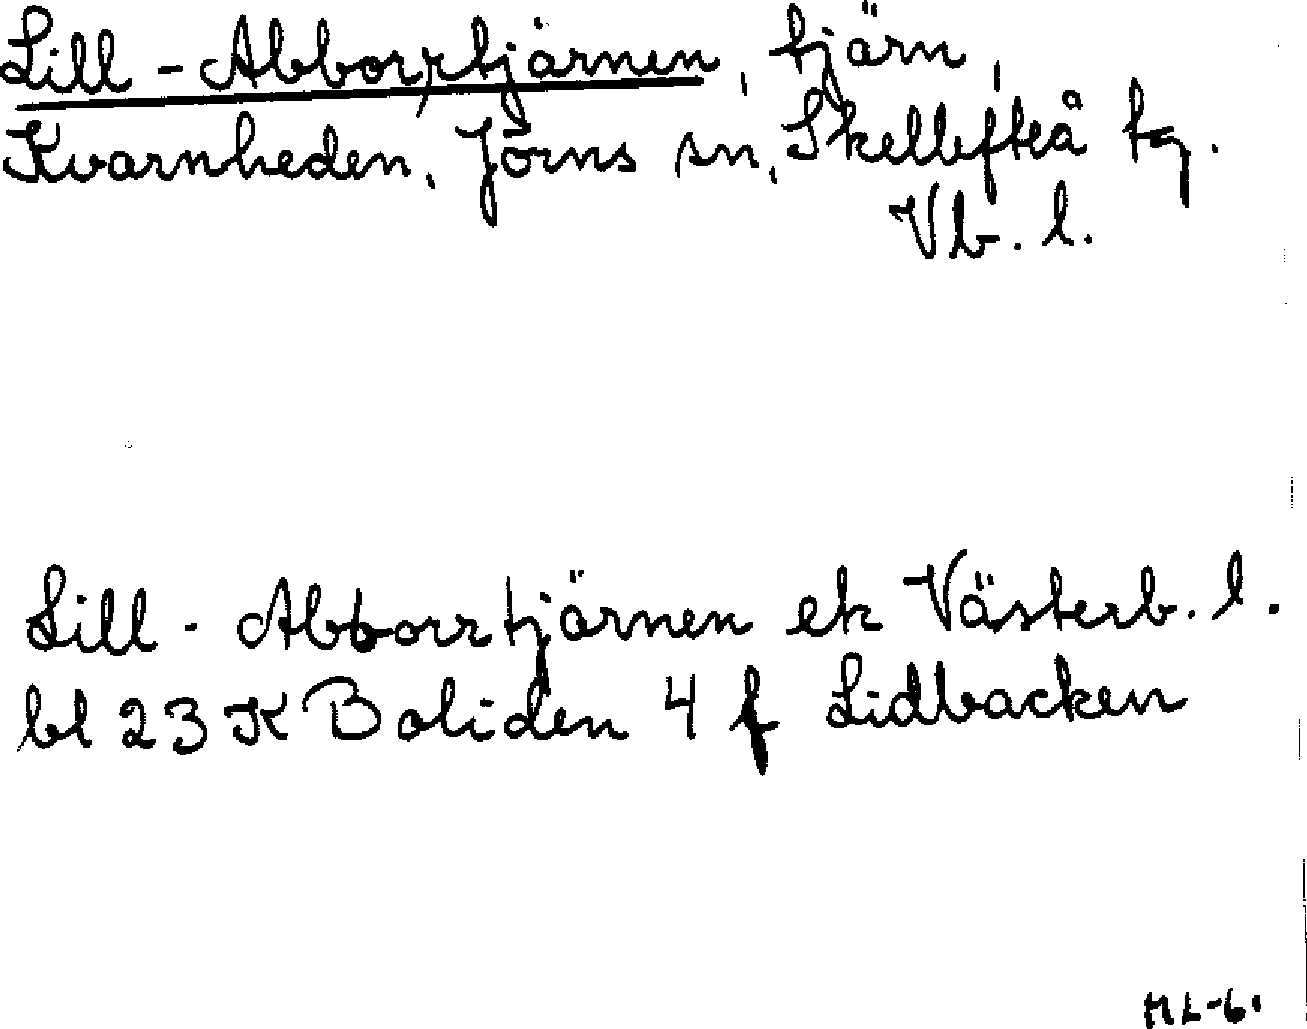 Lill-Abborrtjärnen, tjärn,
Kvarnheden, Jörns sn, Skellefteå tg.
Vb. l.
Lill-Abborrtjärnen ek Västerb. l.
bl 23 K Boliden 4 f Lidbacken